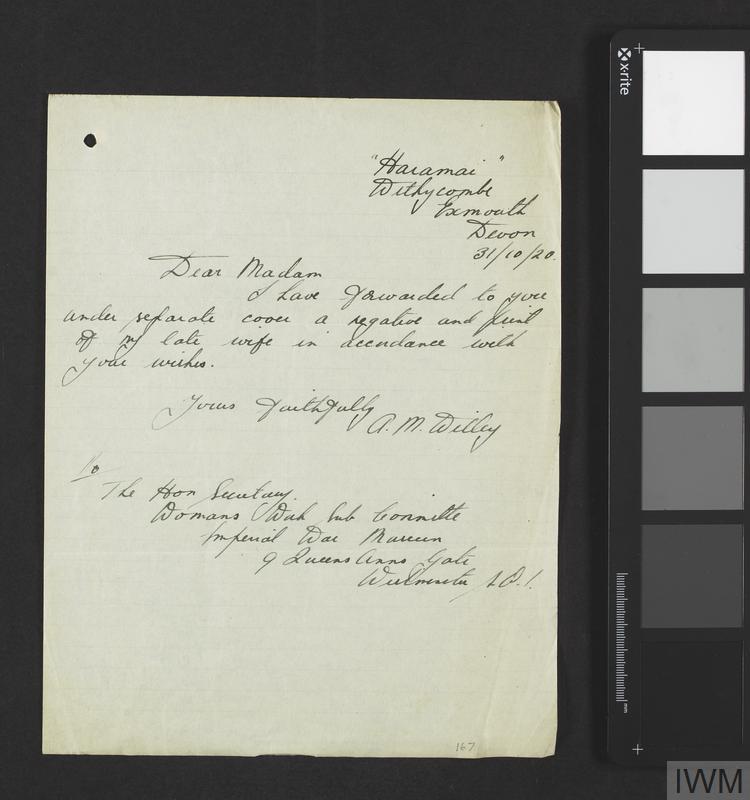 "Haramai"
Withycombe
Exmouth
Devon
31/10/20.
Dear Madam
I have forwarded to you
under separate cover a negative and print
of my late wife in accordance with
your wishes.
Yours faithfully
A. M. Willey
To
The Hon Secretary.
Womans Work Sub Committee
Imperial War Museum
9 Queens Anns Gate
Westminster S.W.1.
167
x-rite
mm
IWM